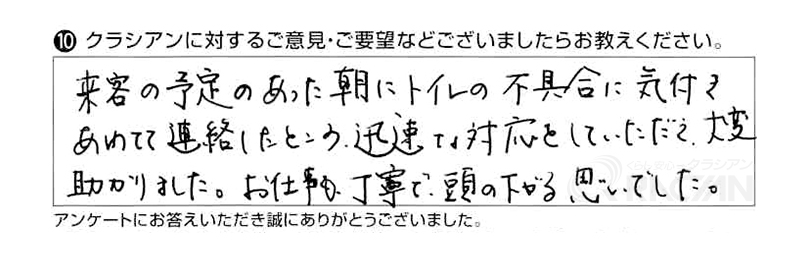 ⑩ クラシアンに対するご意見・ご要望などございましたらお教えください。
来客の予定のあった朝にトイレの不具合に気付き
あわてて連絡したところ、迅速な対応をしていただき、大変
助かりました。お仕事も丁寧で、頭の下がる思いでした。
アンケートにお答えいただき誠にありがとうございました。